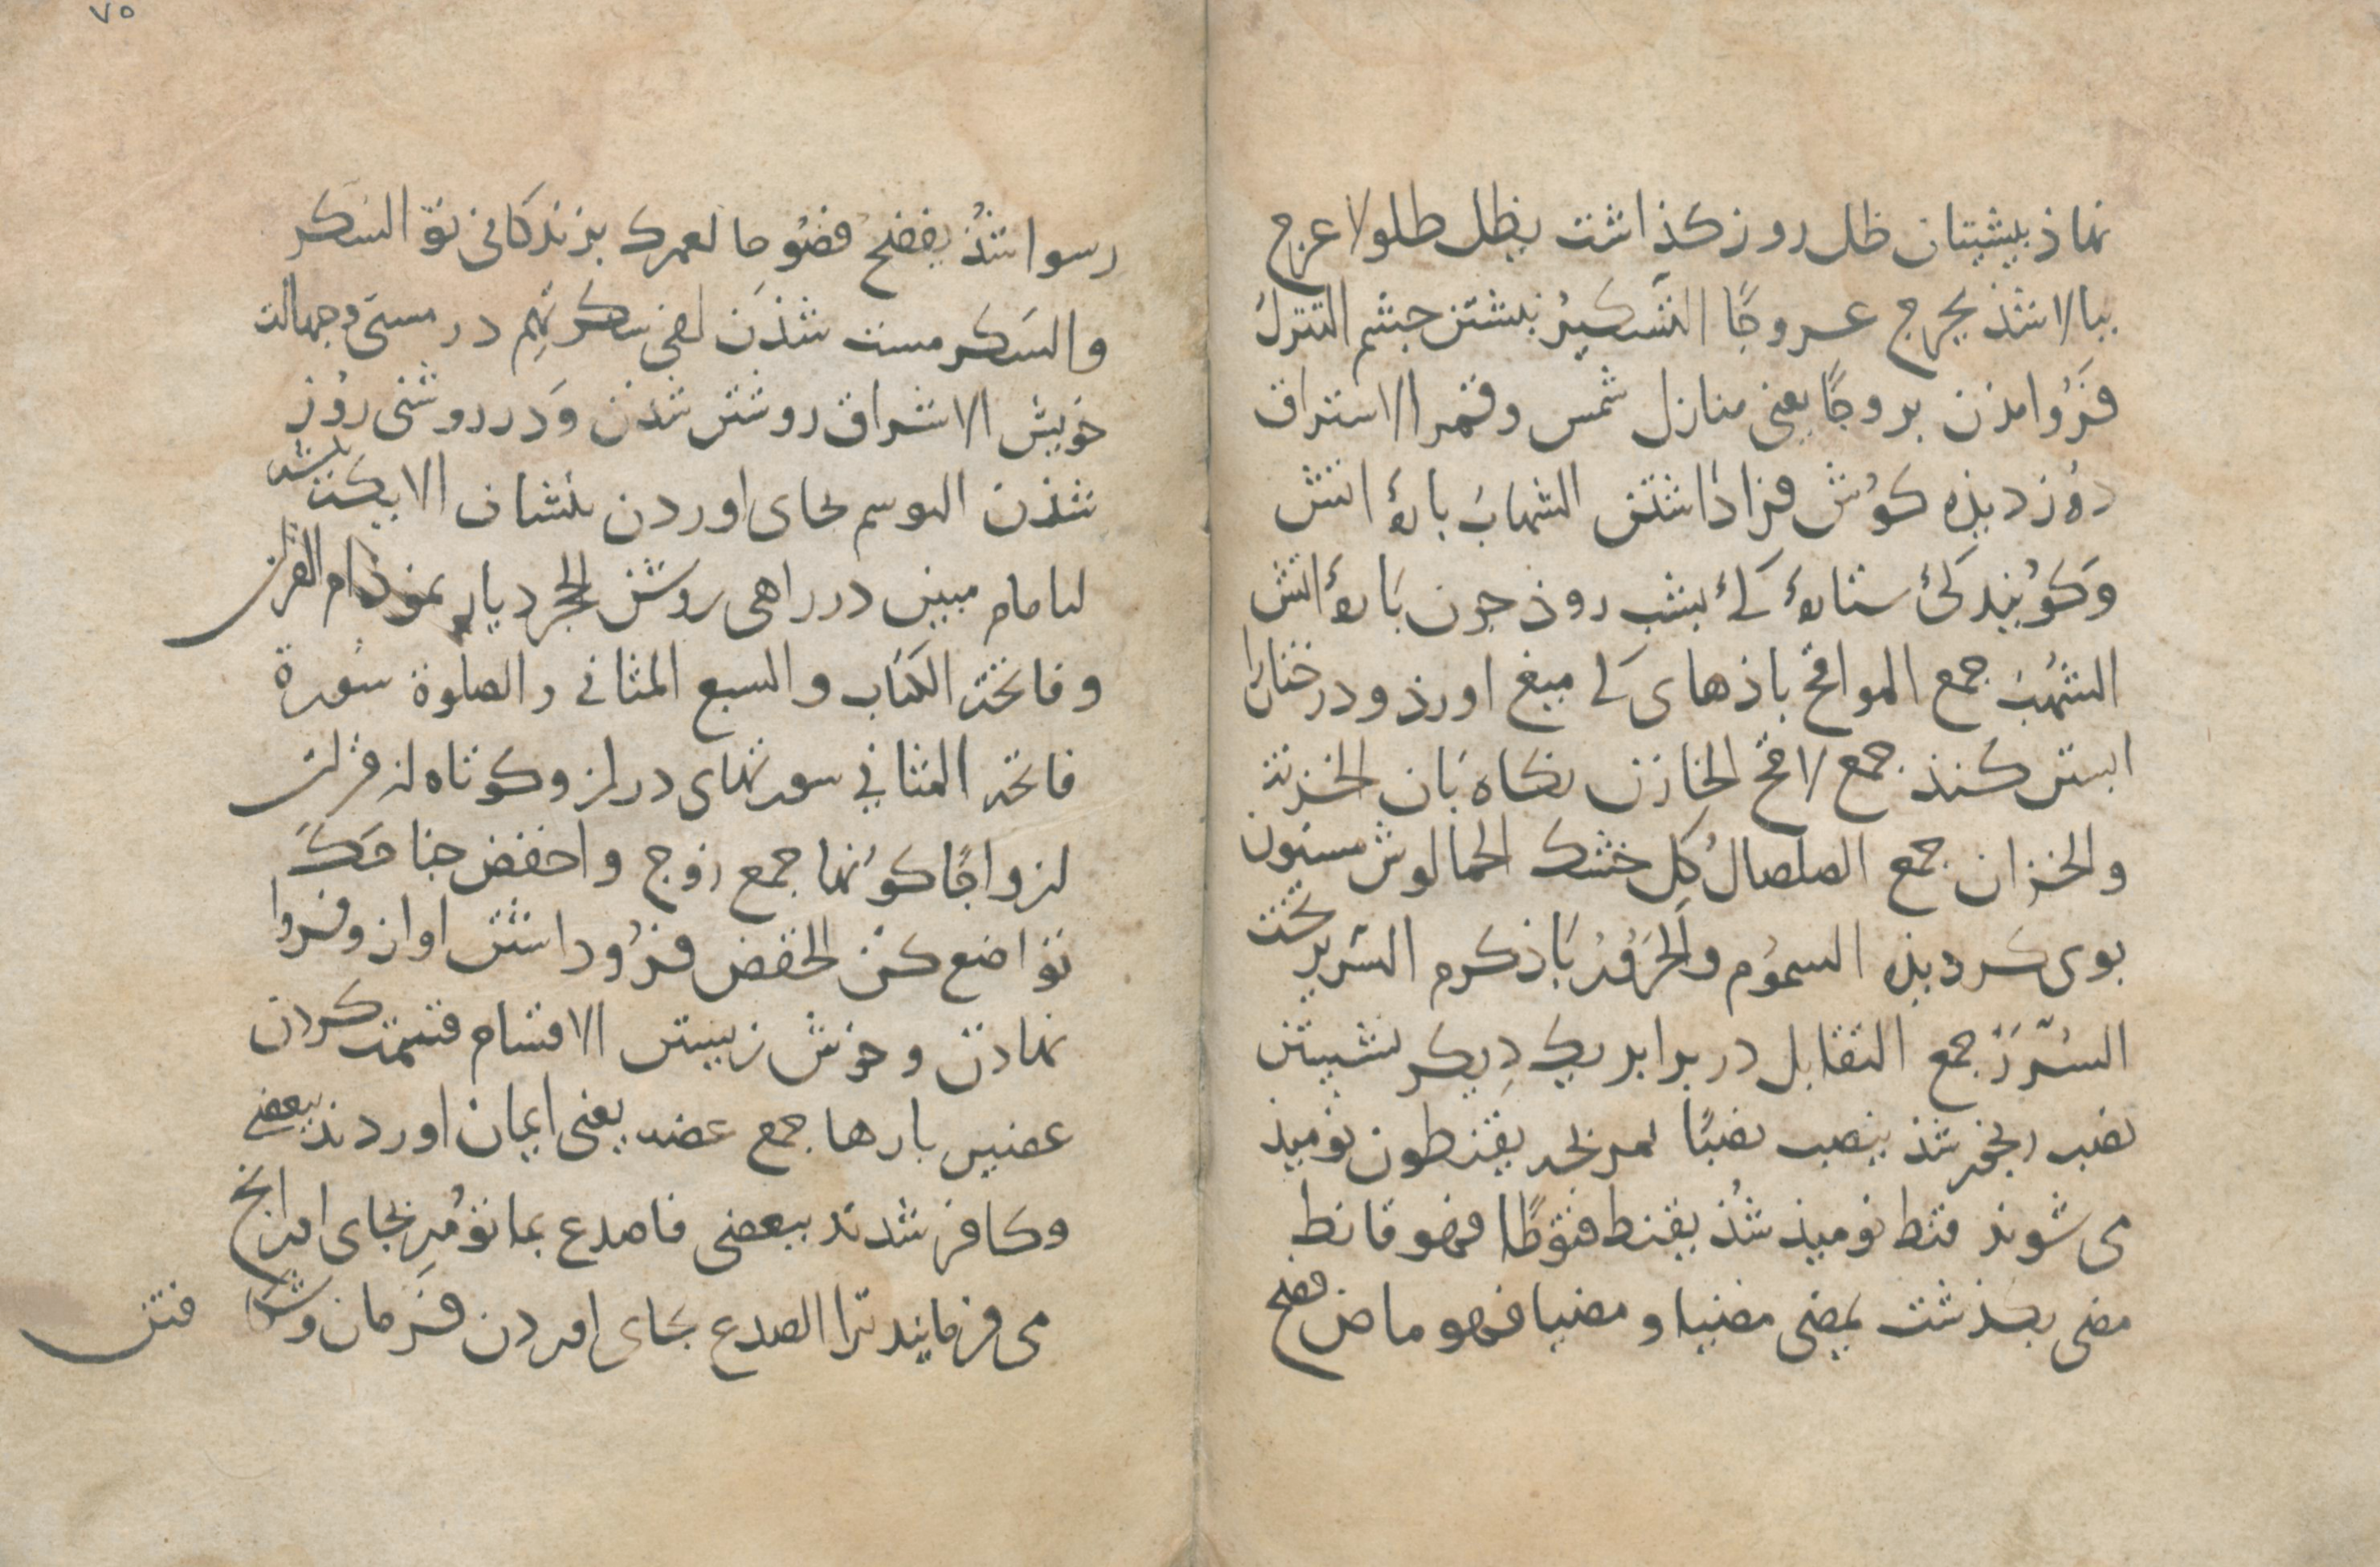 نماذ پیشیتان ظل روز كذاشت یظل ظلولا عرج
ببالا شذ یعرج عروجًا التسكیر ببستن جشم التنزل
فَرُوامذن بروجًا یعنی منازل شمس وقمر الاستراق
دُوزدیذه كوُش فراذاشتن الشهابَ بارۀ اتش
وَكوُیند كی ستارۀ كی بشب روذ جون بَارۀ اتش
الشهُبَ جمع المواقح باذهای كی میغ اورذ ودرختانرا
ابستن كنذ جمع لاقح الخازن نكاه بَان الخزنة
والخزان جمع الصلصالُ كِل خشك الحما لوش مسنون
بوی كردیذه السموُم والحَرُوُر بَاذ كرم السَریر تخت
السُرَر جمع التقابل در برابر یك دِیكر نشیتن
نصب رنجور شذ ینصب نصبًا یقنطون نومیذ
می شوند قنط نومیذ شُذ یقنط قنوطًا فهو قانط
مضی بكذشت یمضی مضیا و مضیا فهو ماض فضح
۷۵
رسوا شذُ یفضح فضُوحا لعمرك بزندكانی تو السَكر
والسَكر مست شذَن لفی سكرتهِم در مستی وجهالت
خویش الاشراق روشن شدن وَدر روشنی روُز
شذن التوسم بجای اوردن بنشان الایكت بیشه
لبامام مبین در راهی روشن الحِجْر دیار ثمود ام القران
وفاتحة الكتاب والسبع المثانی والصلوة سُورة
فاتحه المثانی سورتهای دراز وكوتاه از قران
ازواجًا كوُنها جمع زوج واخفض جناحَكَ
تواضع كنْ الخفض فرُوداشتن اواز وفروا
نهادن وخوش زیستن الاقتسام قسمت كردن
عضین بارها جمع عضه یعنی ایمان اوردند ببعضی
وكافر شدند ببعضی فاصدع بما توُمِر بجای ار انچ
می فرمایند ترا الصدع بجای اوردن فَرمان وشكا فتن